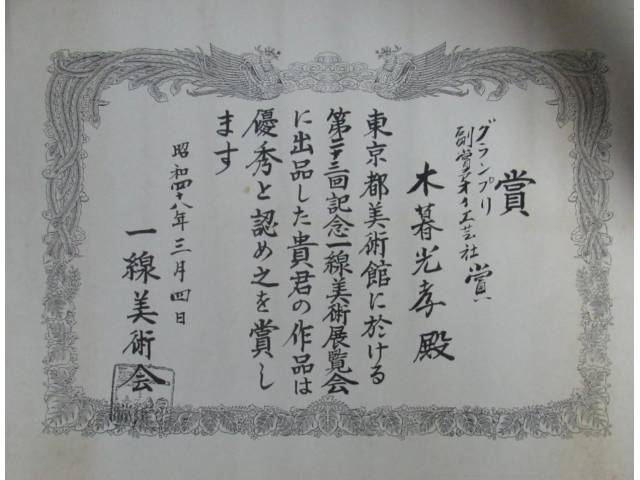 賞
グランプリ
副賞 工芸社賞
木暮光孝殿
東京都美術館に於ける
第二十三回記念一線美術展覧会
に出品した貴君の作品は
優秀と認め之を賞し
ます
昭和四十八年三月四日
一線美術会